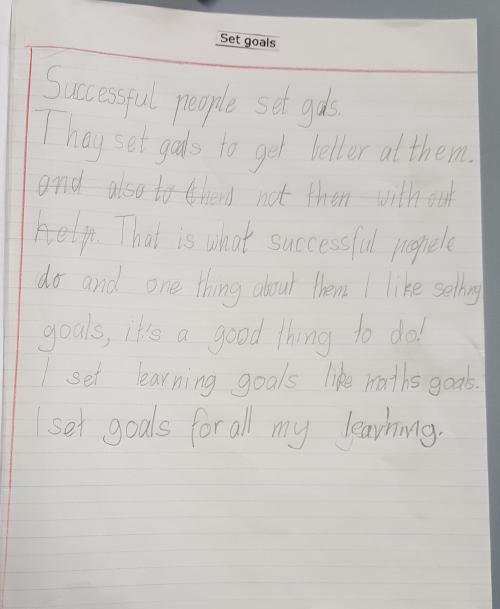 Set goals
Successful people set gals.
Thay set gals to get better at them.
and also to not then with out
help. That is what successful
do and one thing about them I like setting
goals, it's a good thing to do!
I set learning goals like maths goals.
I set goals for all my learning.